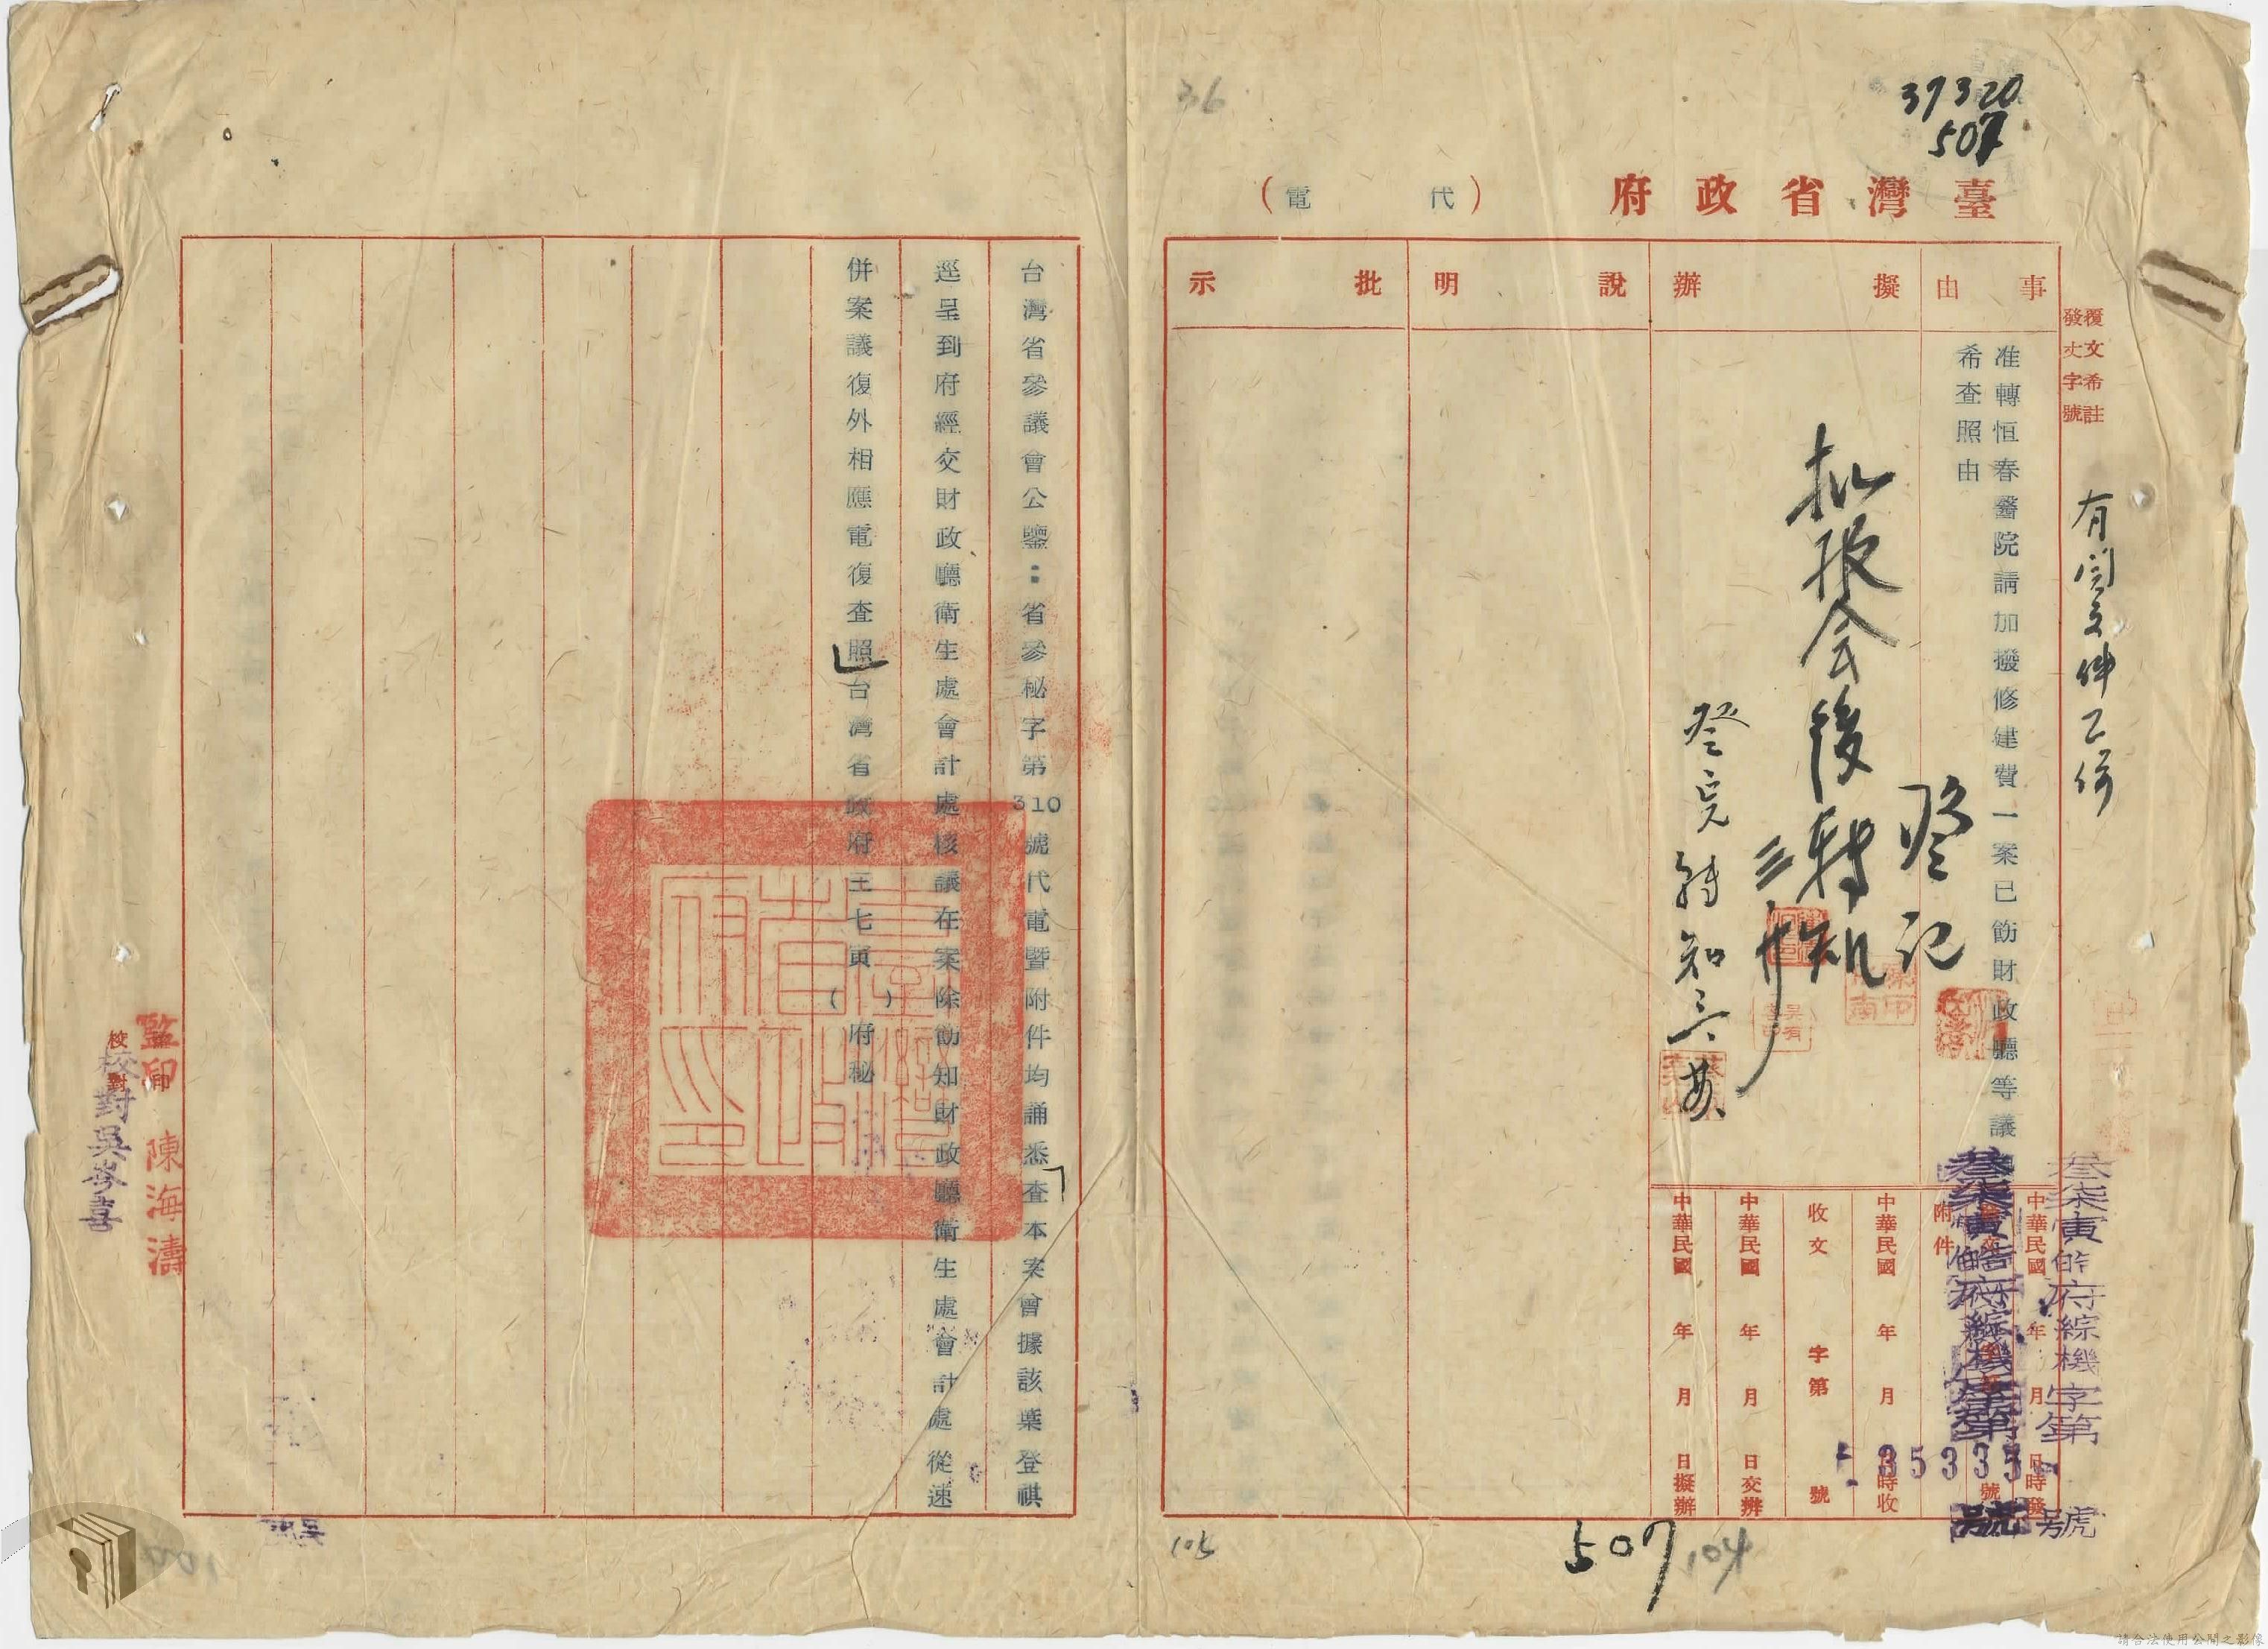 37320
507
36
臺灣省政府（代電）
覆文希註
發文字號
事由
擬辦
說明
批示
准轉恒春醫院請加撥修建費一案已飭財政廳等議
希查照由
有關文件乙份
登記
批報会後轉知
叁柒寅皓府綜機字第
35335
號
中華民國 年 月 日時發
附件
號
中華民國 年 月 日時收
收文 字第 號
中華民國 年 月 日交辦
中華民國 年 月 日擬辦
105
507
104
台灣省參議會公鑒：省參秘字第310號代電暨附件均誦悉查本案曾據該葉登祺
逕呈到府經交財政廳衛生處會計處核議在案除飭知財政廳衛生處會計處從速
併案議復外相應電復查照台灣省政府三七寅（ ）府秘
臺灣省政府印
監印 陳海濤
校對 吳岑喜
請合法使用公開之影像